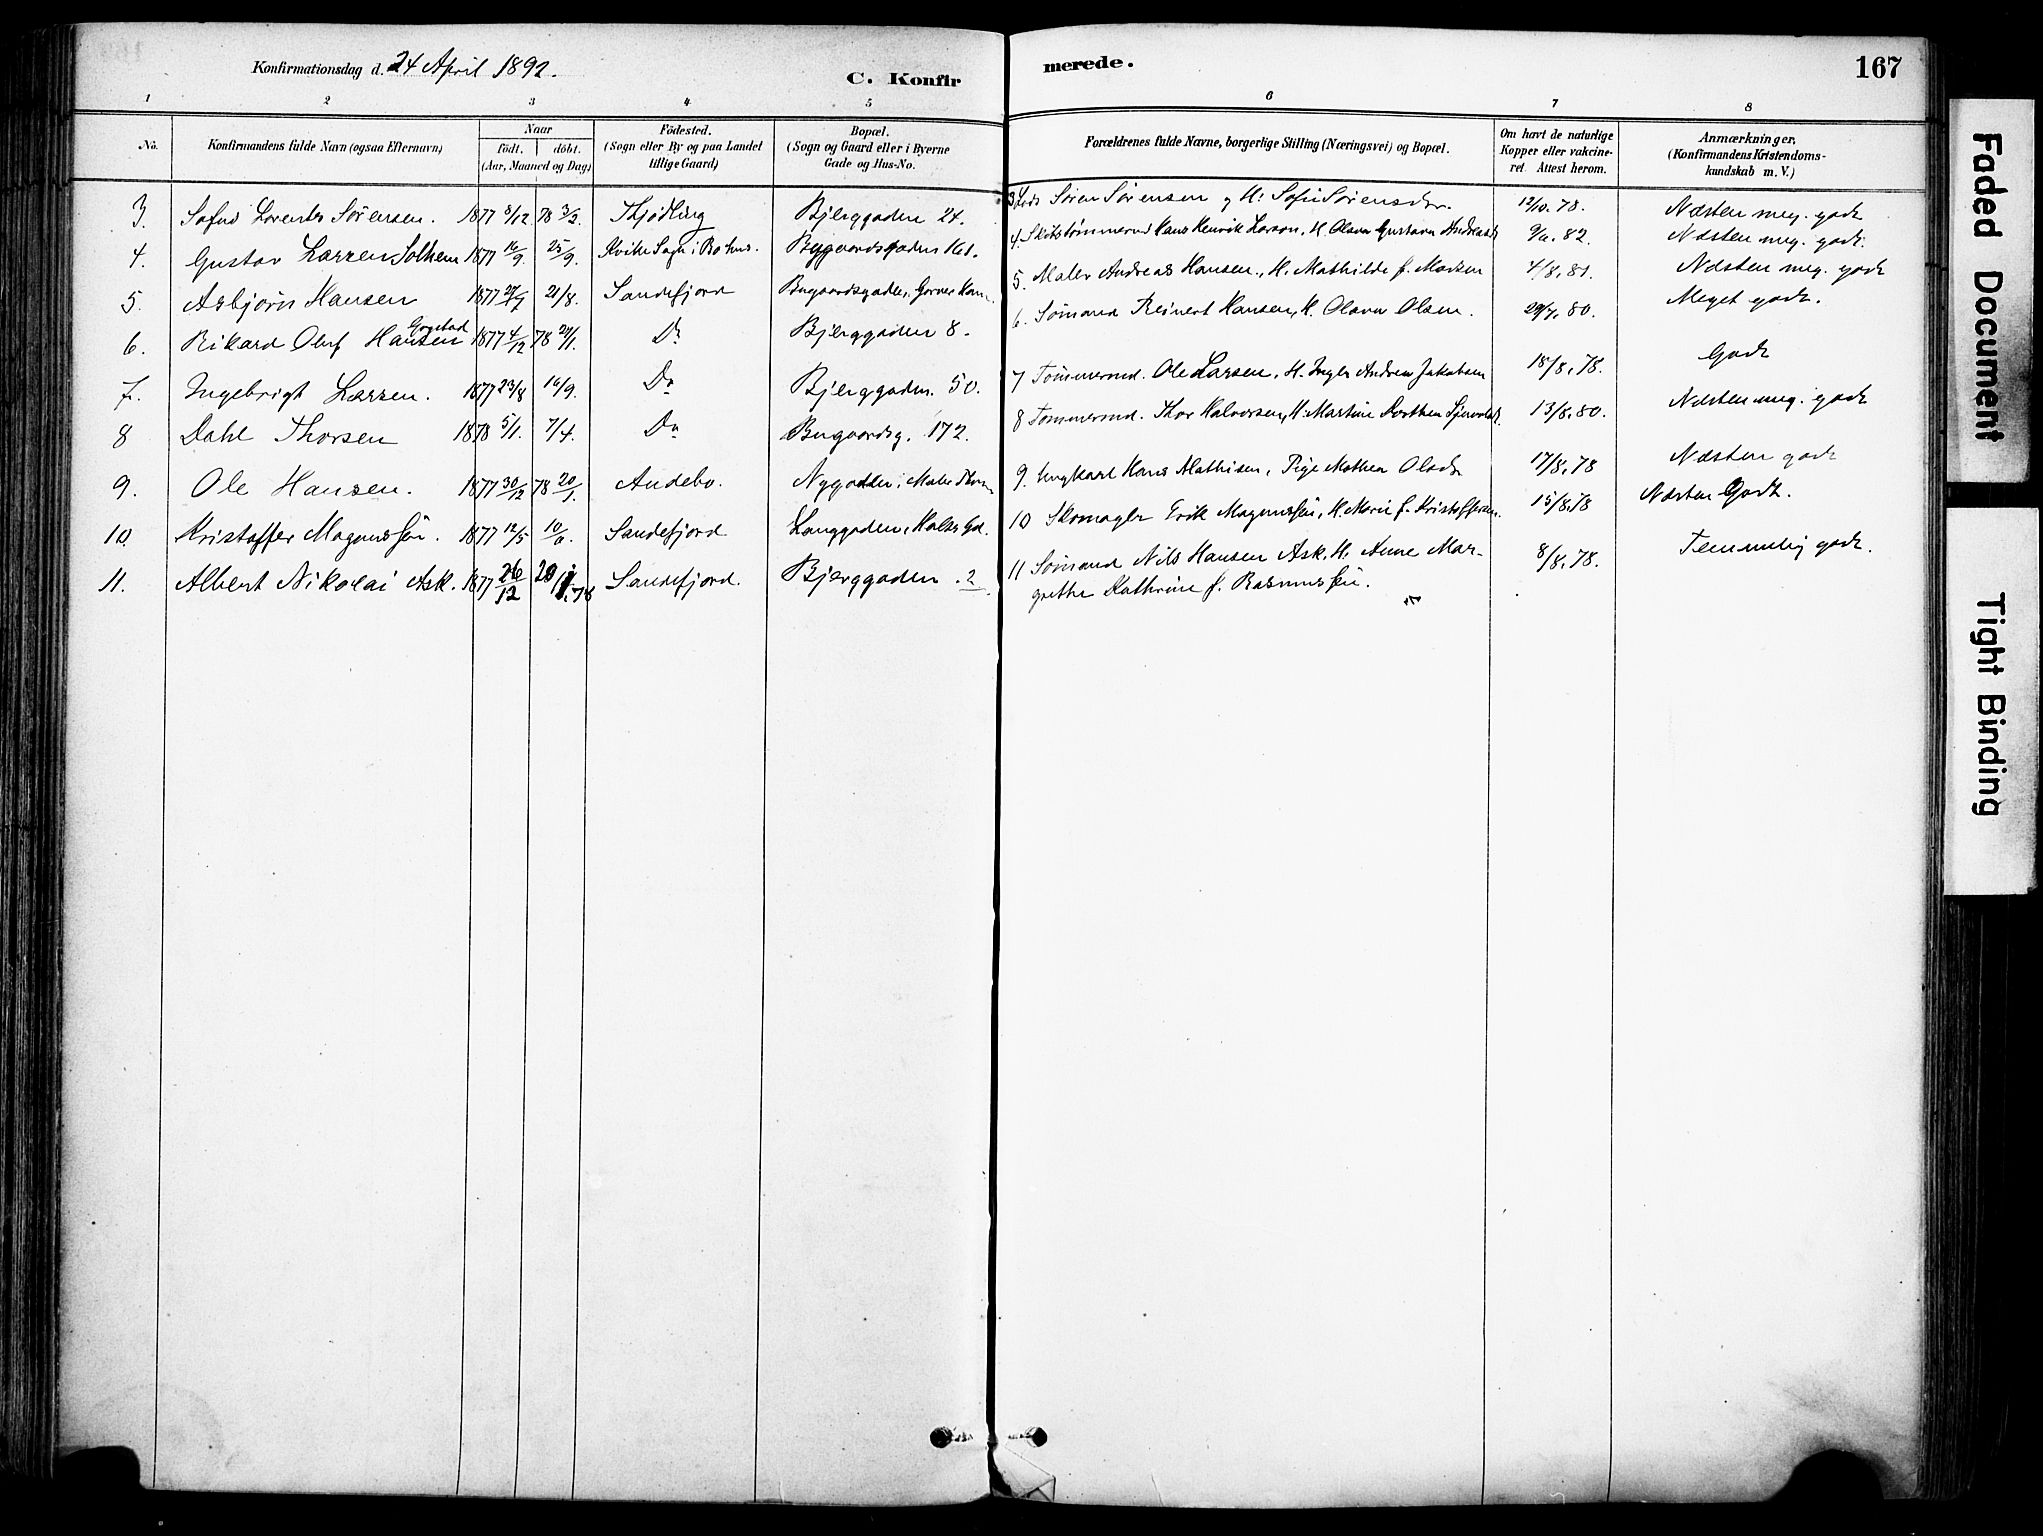 Konfirmationsdag d. 24 April 1892.
C. Konfir
merede.
167
1 2 3 4 5 6 7 8
No.
Konfirmandens fulde Navn (ogsaa Efternavn)
Naar
födt. döbt.
(Aar, Maaned og Dag)
Födested.
(Sogn eller By og paa Landet
tillige Gaard)
Bopæl.
(Sogn og Gaard eller i Byerne
Gade og Hus-No.
Forældrenes fulde Navne, borgerlige Stilling (Næringsvei) og Bopæl.
Om havt de naturlige
Kopper eller vakcine-
ret. Attest herom.
Anmærkninger,
(Konfirmandens Kristendoms-
kundskab m. V.)
3. Sofus Lorents Sørensen. 1877 8/12 78 3/3. Thjødling Bjerggaden 24.
3 Lods Søren Sørensen og H. Sofie Sørensdtr. 12/10. 78. Næsten meg. godt
4. Gustav Larsen Solhem 1877 14/9. 25/9. Kvike Sogn i Bohus. Bygaardsgaden 161.
4. Skibstømmermd Hans Henrik Larson, H. Olava Gustava 82. Næsten meg. godt.
5. Asbjørn Hansen 1877 27/7 21/8. Sandefjord Bugaardsgaden, Garver
5. Maler Andreas Hansen, H. Mathilde f. Madsen 4/8. 81. Næsten meg. godt
6. Rikard Oluf Hansen Gogstad 1877 4/12 78 20/1. Do Bjerggaden 8.
6. Sømand Reinert Hansen, H. Olava Olsen. 29/7. 80. Meget godt.
7. Ingebrigt Larsen. 1877 23/8 16/9. Do Bjerggaden. 50.
7 Tømmermd. Ole Larsen, H. Inger Andrea Jakobsen 18/8. 78. Godt
8 Dahl Thorsen 1878 5/1. 7/4. Do Bugaardsg. 172.
8 Tømmermd. Thor Halvorsen, H. Martine Dorthea 13/8. 80. Næsten meg. godt
9. Ole Hansen. 1877 30/12 78 20/1. Andebo. Nygaden, Maler
9. Ungkarl Hans Mathisen, Pige Mathea Olsdtr 17/8. 78 Næsten godt
10. Kristoffer Magnussen. 1877 12/5 10/6. Sandefjord Langgaden,
10 Skomager Erik Magnussen, H. Marie f. Kristoffersen. 15/8. 78 Næsten Godt.
11. Albert Nikolai Ask. 1877 26/12 20/1. 78 Sandefjord. Bjerggaden. 2.
11 Sømand Nils Hansen Ask. H. Anne Mar- 8/8. 78. Temmelig godt.
grethe Kathrine f. Rasmussen.
Faded Document
Tight Binding